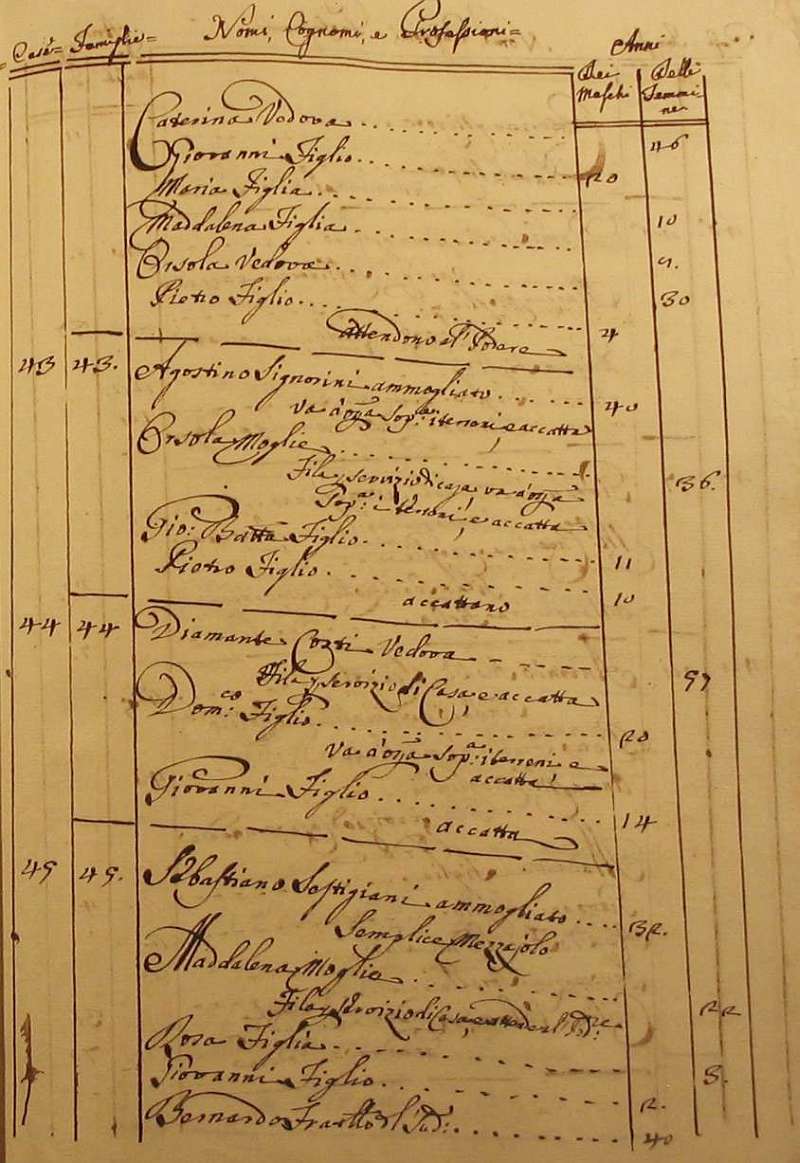 Case= Famiglie= Nomi, Cognomi, e Professioni= Anni
Dei Maschi Delle Femmine
Caterina Vedova 46
Giovanni Figlio 20
Maria Figlia 10
Maddalena Figlia 9.
Orsola Vedova 30
Pietro Figlio 4
attendono al Podere
43 43. Agostino Signorini ammogliato 40
va a op.a sop.a i terreni, e accatta
Orsola Moglie 36.
Fila, servizio di casa, va a op.a
sop.a i terreni, e accatta
Gio: Batta Figlio 11
Pietro Figlio 10
accattano
44 44 Diamante Corti Vedova 57
Fila, servizio di Casa, e accatta
Dom.co Figlio 20
va a op.a sop.a i terreni e
accatta
Giovanni Figlio 14
accatta
45 45. Sebastiano Sestigiani ammogliato 32.
Semplice Mezzajolo
Maddalena Moglie 22
Fila, servizio di Casa, e attende al Pod.re
Rosa Figlia 3.
Giovanni Figlio 2.
Bernardo Fratello d'l Sud: 40